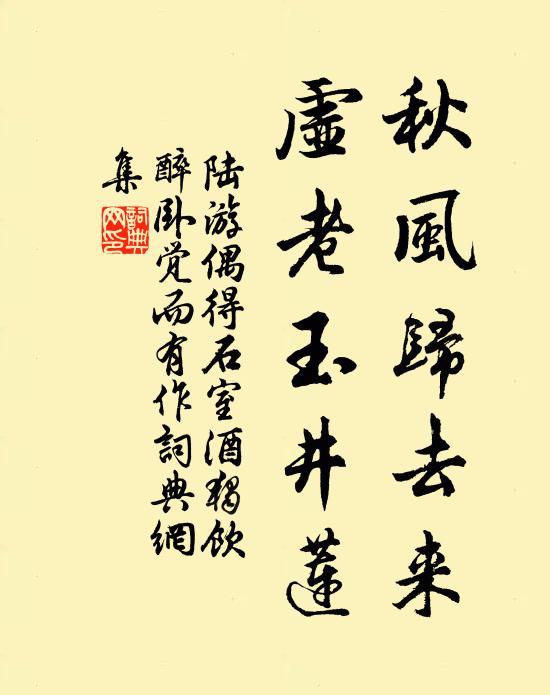 秋風歸去来
虛老玉井蓮
陆游偶得石室酒獨飲
醉卧觉而有作詞典網
集
詞典
网印